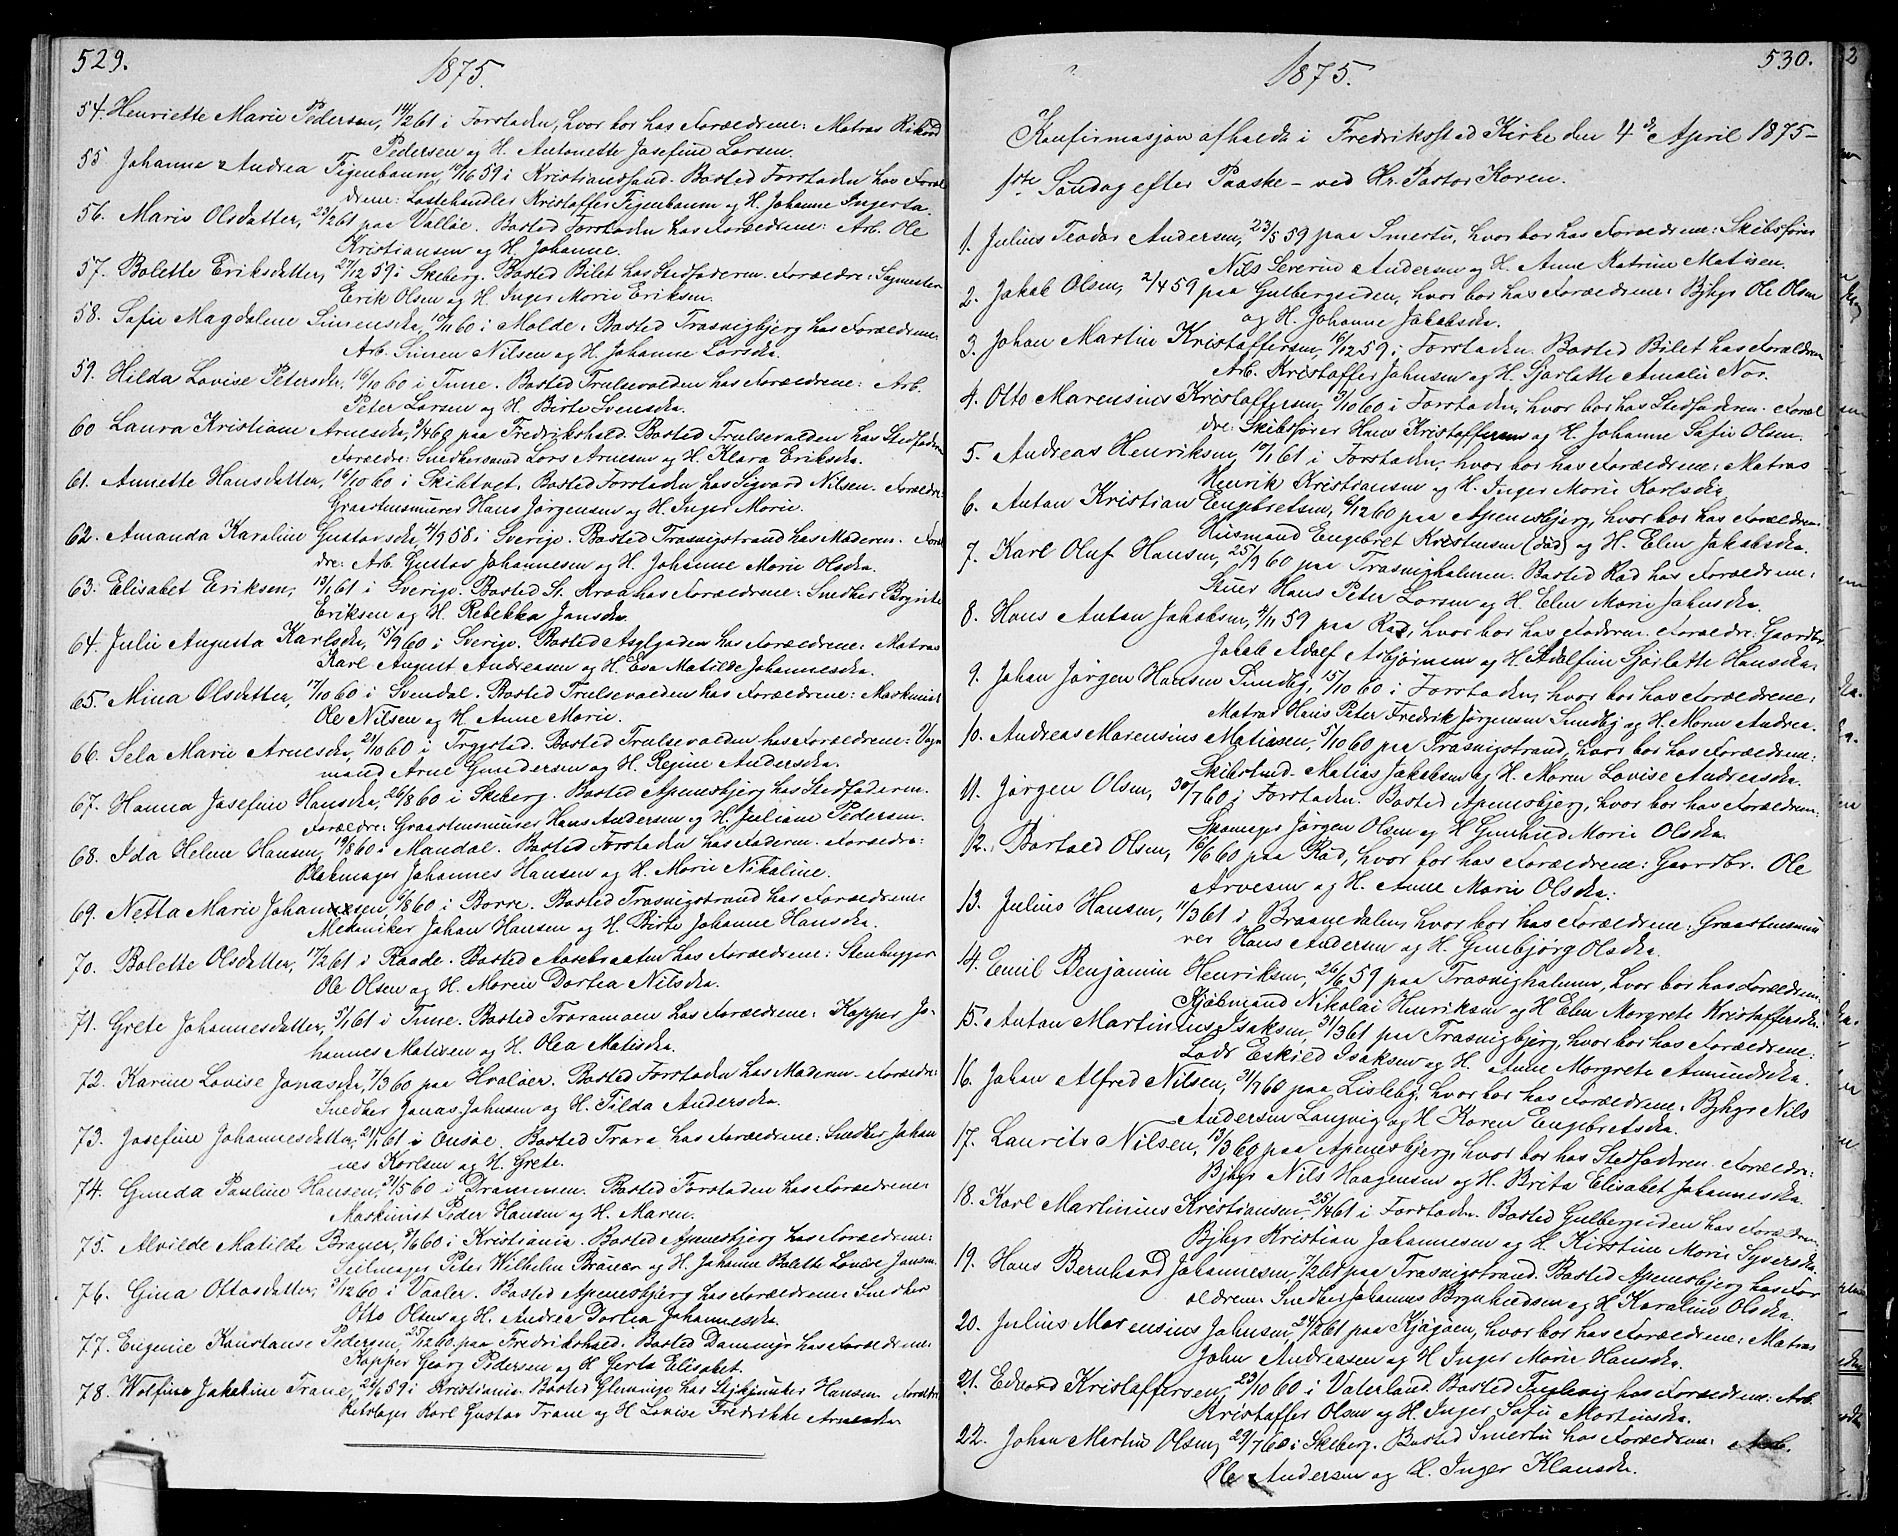 529.
1875.
54. Henriette Marie Pedersen, 14/2 61 i Forstaden, hvor bor hos Forældrene: Matros Rikard
Pedersen og H. Antonette Josefine Larsen.
55 Johanne Andrea Figenbaum, 10/16 59 i Kristiansand. Bosted Forstaden hos Foræl
drene: Lostehandler Kristoffer Figenbaum og H. Johanne
56. Marie Olsdatter, 29/2 61 paa Valløe. Bosted Forstaden hos Forældrene: Arb. Ole
Kristiansen og H. Johanne.
57. Bolette Eriksdatter, 27/12 59 i Skeberg. Bosted Bilet hos Stedfaderen. Forældre:
Erik Olsen og H. Inger Marie Eriksen.
58. Sofie Magdalene Simensda, 10/11 60 i Molde. Bosted Trosvigbjerg hos Forældrene:
Arb. Simen Nilsen og H. Johanne Larsda.
59. Hilda Lovise Petersda, 16/10 60 i Tune. Bosted Trulsevolden hos Forældrene: Arb.
Peter Larsen og H. Birte Svensda.
60 Laura Kristiane Arnesda, 9/4 60 paa Fredrikshald. Bosted Trulsevolden hos Stedfaderen
Forældre: Snedkersvend Lars Arnesen og H. Klara Eriksda.
61. Annette Hansdatter, 16/10 60 i Skibtvet. Bosted Forstaden hos Sigvard Nilsen. Forældre:
Graastensmurer Hans Jørgensen og H. Inger Marie.
62. Amanda Karoline Gustavsda, 4/9 58 i Sverige. Bosted Trosvigstrand hos Moderen. Foræl
dre: Arb. Gustav Johannesen og H. Johanne Marie Olsda.
63. Elisabet Eriksen, 13/1 61 i Sverige. Bosted St. Kraa hos Forældrene: Snedker
Eriksen og H. Rebekka Jansda.
64. Julie Augusta Karlsda, 15/9 60 i Sverige. Bosted Asylgaden hos Forældrene: Matros
Karl August Andreasen og H. Eva Matilde Johannesda.
65. Mina Olsdatter, 17/10 60 i Svendal. Bosted Trulsevolden hos Forældrene: Maskinist
Ole Nilsen og H. Anne Marie.
66. Sela Marie Arnesda, 21/10 60 i Trygstad. Bosted Trulsevolden hos Forældrene: Vogn
mand Arne Gundersen og H. Regine Andersda.
67. Hanna Josefine Hansda, 26/8 60 i Skeberg. Bosted Apenesbjerg hos Stedfaderen.
Forældre: Graastensmurer Hans Andersen og H. Juliane Pedersen.
68. Ida Helene Hansen, 19/8 60 i Mandal. Bosted Forstaden hos Faderen. Forældre:
Blokmager Johannes Hansen og H. Marie Nikoline.
69. Netta Marie Johannesen, 6/8 60 i Borre. Bosted Trosvigstrand hos Forældrene
Mekaniker Johan Hansen og H. Birte Johanne Hansda.
70. Bolette Olsdatter, 17/2 61 i Raade. Bosted Aasebraaten hos Forældrene: Stenhugger
Ole Olsen og H. Maren Dortea Nilsda.
71. Grete Johannesdatter, 5/1 61 i Tune. Bosted Traramoen hos Forældrene: Kapper Jo-
hannes Matisen og H. Olea Matisda.
72. Karine Lovise Jonasda, 7/3 60 paa Hvaløer. Bosted Forstaden hos Moderen. Forældre:
Snedker Jonas Johnsen og H. Tilda Andersda.
73. Josefine Johannesdatter, 21/1 61 i Onsøe. Bosted Trara hos Forældrene: Snedker Johan
nes Karlsen og H. Grete.
74. Gunda Pauline Hansen, 21/5 60 i Drammen. Bosted Forstaden hos Forældrene
Maskinist Peder Hansen og H. Maren.
75. Alvilde Matilde Braner, 9/6 60 i Kristiania. Bosted Apenesbjerg hos Forældrene:
Seilmager Peter Wilhelm Braner og H. Johanne Bolette Lovise Jansen.
76. Gina Ottosdatter, 9/12 60 i Vaaler. Bosted Apenesbjerg hos Forældrene Snedker
Otto Olsen og H. Andrea Dortea Johannesda.
77. Eugenie Konstanse Pedersen, 25/12 60 paa Fredrikshald. Bosted Dammyr hos Forældrene:
Kapper Georg Pedersen og H. Jerta Elisabet.
78. Wolfine Jakobine Trane, 24/9 59 i Kristiania. Bosted Glemminge hos Hansen Forældre
Karl Gustav Trane og H Lovise Fredrikke Arnesda
530.
1875.
Konfirmasjon afholdt i Fredriksstad Kirke den 4de April 1875-
1ste Søndag efter Paaske - ved Hr. Pastor Koren.
1. Julius Teodor Andersen, 23/5 59 paa Smertu, hvor bor hos Forældrene: Skibsfører
Nils Severin Andersen og H. Anne Katrine Matisen.
2. Jakob Olsen, 2/4 59 paa Gulbergseiden, hvor bor hos Forældrene: Bjhgs Ole Olsen
og H. Johanne Jakobsda.
3. Johan Martin Kristoffersen, 16/12 59 i Forstaden. Bosted Bilet hos Forældrene
Arb. Kristoffer Johnsen og H. Sjarlotte Amalie Nor.
4. Otto Marensius Kristoffersen, 9/10 60 i Forstaden, hvor bor hos Stedfaderen. Foræl
dre: Skibsfører Hans Kristoffersen og H. Johanne Sofie Olsen.
5. Andreas Henriksen, 17/1 61 i Forstaden, hvor bor hos Forældrene: Matros
Henrik Kristiansen og H. Inger Marie Karlsda
6. Anton Kristian Engebretsen, 6/12 60 paa Apenesbjerg, hvor bor hos Forældrene:
Husmand Engebret Kristensen (død) og H. Elen Jakobsda.
7. Karl Oluf Hansen, 25/9 60 paa Trosvigholmen. Bosted Rød hos Forældrene:
Stuer Hans Peter Larsen og H. Elen Marie Johnsda.
8. Hans Anton Jakobsen, 4/11 59 paa Rød, hvor bor hos Faderen. Forældre: Gaardbr.
Jakob Adolf Asbjørnsen og H. Adolfine Sjarlotte Hansda.
9. Johan Jørgen Hansen Sundby, 15/10 60 i Forstaden, hvor bor hos Forældrene:
Matros Hans Peter Fredrik Jørgensen Sundby og H. Maren Andrea.
10. Andreas Marensius Matiasen, 3/10 60 paa Trosvigstrand, hvor bor hos Forældrene:
Matias Jakobsen og H. Maren Lovise Andreasda.
11. Jørgen Olsen, 30/7 60 i Forstaden. Bosted Apenesbjerg, hvor bor hos Forældrene:
Jørgen Olsen og H Gunhild Marie Olsda.
12. Bartold Olsen, 16/6 60 paa Rød, hvor bor hos Forældrene: Gaardbr. Ole
Arvesen og H. Anne Marie Olsda.
13. Julius Hansen, 11/3 61 i Braanedalen, hvor bor hos Forældrene: Graastensmu
rer Hans Andersen og H. Gunbjørg Olsda.
14. Emil Benjamin Henriksen, 26/6 59 paa Trosvigholmen, hvor bor hos Forældrene:
Kjøbmand Nikolai Henriksen og H Elen Margrete Kristoffersda.
15. Anton Martinius Isaksen, 31/3 61 paa Trosvigbjerg, hvor bor hos Forældrene:
Lods Eskild Isaksen og H. Anne Margrete Amundsda.
16. Johan Alfred Nilsen, 31/7 60 paa Lisleby, hvor bor hos Forældrene: Bjhgs Nils
Andersen Langvig og H. Karen Engebretsda.
17. Laurits Nilsen, 13/3 60 paa Apenesbjerg, hvor bor hos Stedfaderen. Forældre:
Bjhgs Nils Haagensen og H. Brita Elisabet Johannesda.
18. Karl Martinius Kristiansen, 25/4 61 i Forstaden. Bosted Gulbergseiden hos Forældrene
Bjhgs Kristian Johannesen og H. Kirstine Marie Syversda.
19. Hans Bernhard Johannesen, 7/2 61 paa Trosvigstrand. Bosted Apenesbjerg hos For
ældrene: Snedker Johannes Brynhildsen og H Karoline Olsda.
20. Julius Marensius Johnsen, 24/2 61 paa Kjøgøen, hvor bor hos Forældrene: Matros
John Andreasen og H Inger Marie Hansda.
21. Edvard Kristoffersen, 23/10 60 i Vaterland. Bosted hos Forældrene: Arb.
Kristoffer Olsen og H. Inger Sofie Martinsda.
22. Johan Martin Olsen, 29/7 60 i Skeberg. Bosted Smertu hos Forældrene: Arb.
Ole Andersen og H. Inger Klausda.